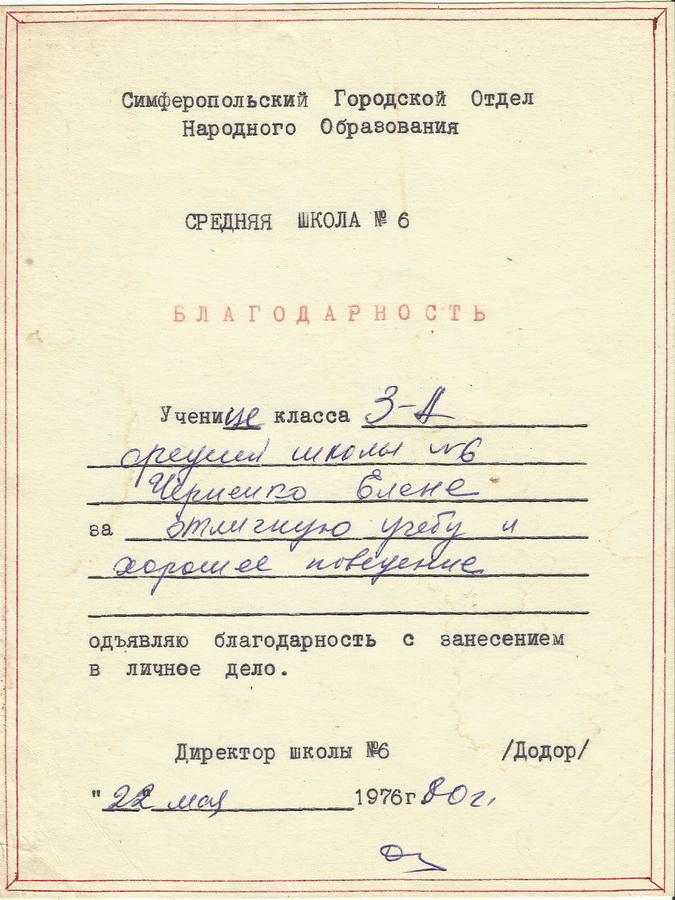 Симферопольский Городской Отдел
Народного Образования
СРЕДНЯЯ ШКОЛА № 6
БЛАГОДАРНОСТЬ
Ученице класса 3-А
средней школы №6
Черненко Елене
за отличную учебу и
хорошее поведение
одъявляю благодарность с занесением
в личное дело.
Директор школы №6 /Додор/
"22 мая 1976г 80г.